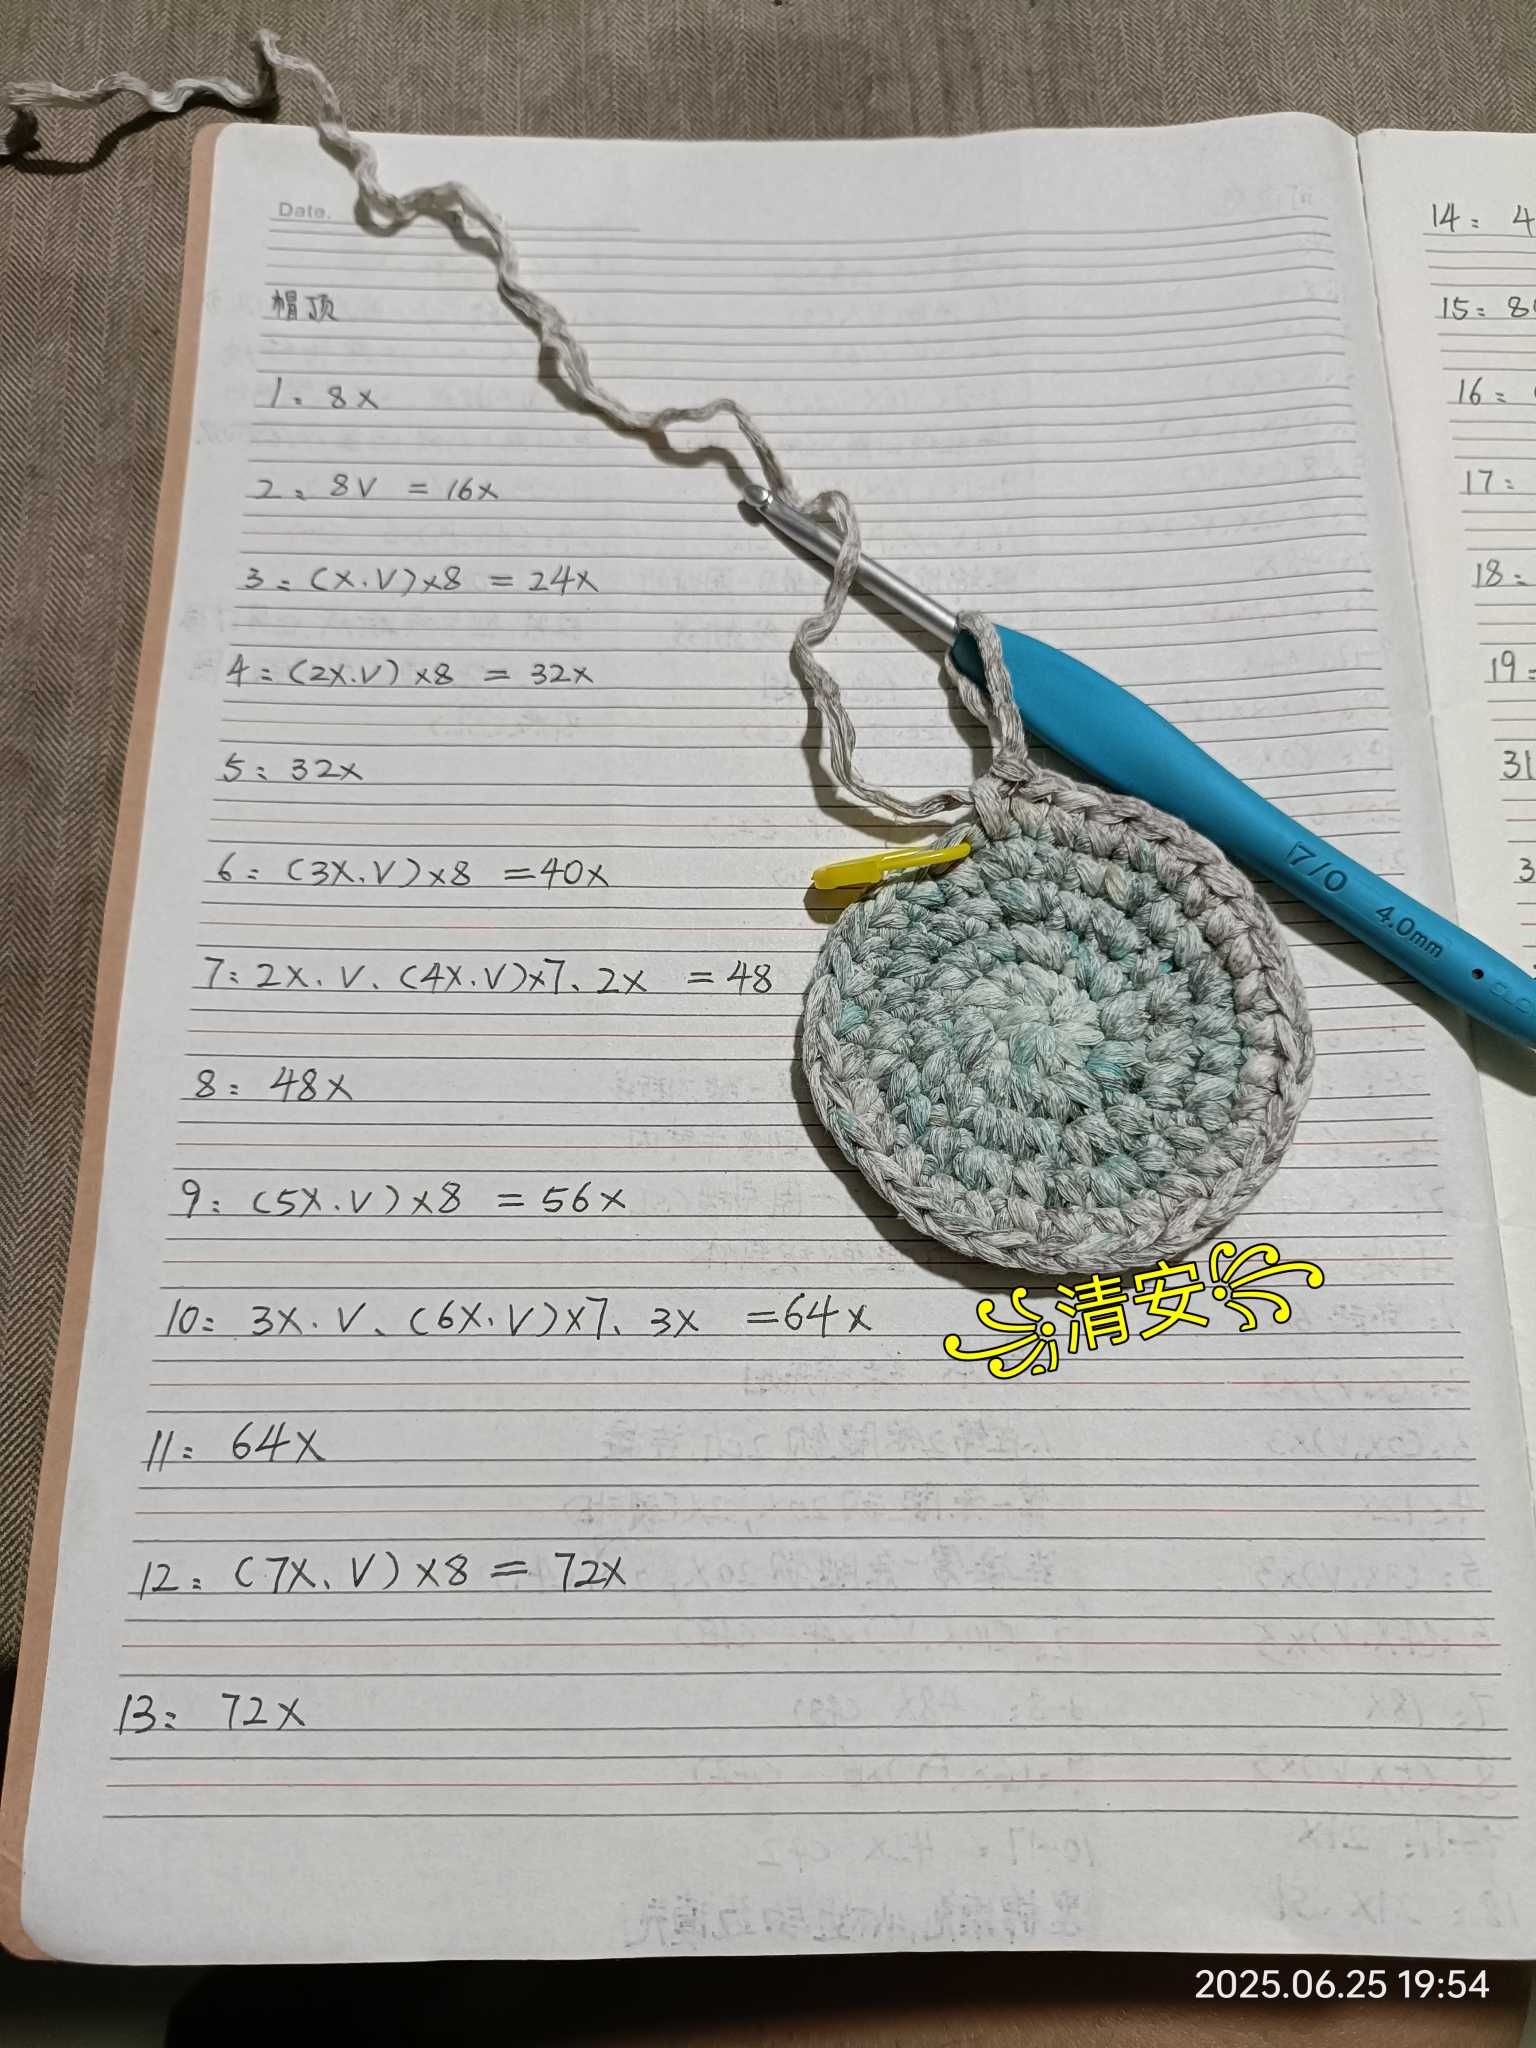 Date.
帽顶
1: 8X
2: 8V = 16X
3: (X.V)×8 = 24X
4: (2X.V)×8 = 32X
5: 32X
6: (3X.V)×8 =40X
7: 2X. V、(4X.V)×7、2X = 48
8: 48X
9: (5X.V)×8 = 56X
10: 3X. V、(6X.V)×7、3X =64X
11: 64X
12: (7X、V)×8 = 72X
13: 72X
14: 4
15: 8
16:
17:
18:
19:
31
3
7/0 4.0mm
清安
2025.06.25 19:54